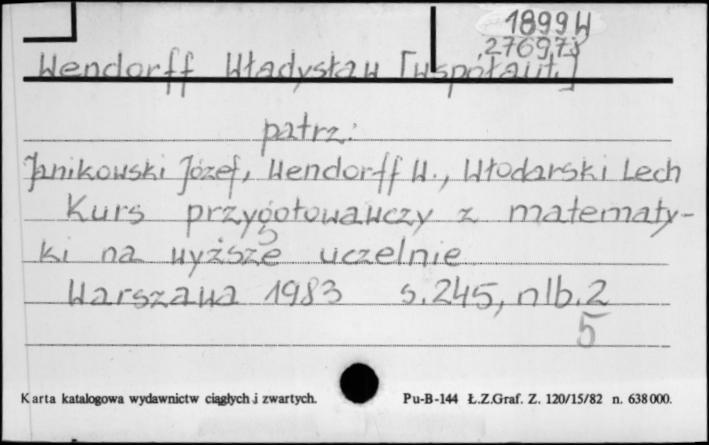 1899W
276973
Wendorff Władysław [współaut.]
patrz:
Janikowski Józef, Wendorff W., Włodarski Lech
Kurs przygotowawczy z matematy-
ki na wyższe uczelnie
Warszawa 1983 s.245, nlb.2
5
Karta katalogowa wydawnictw ciągłych i zwartych. Pu-B-144 Ł.Z.Graf. Z. 120/15/82 n. 638000.